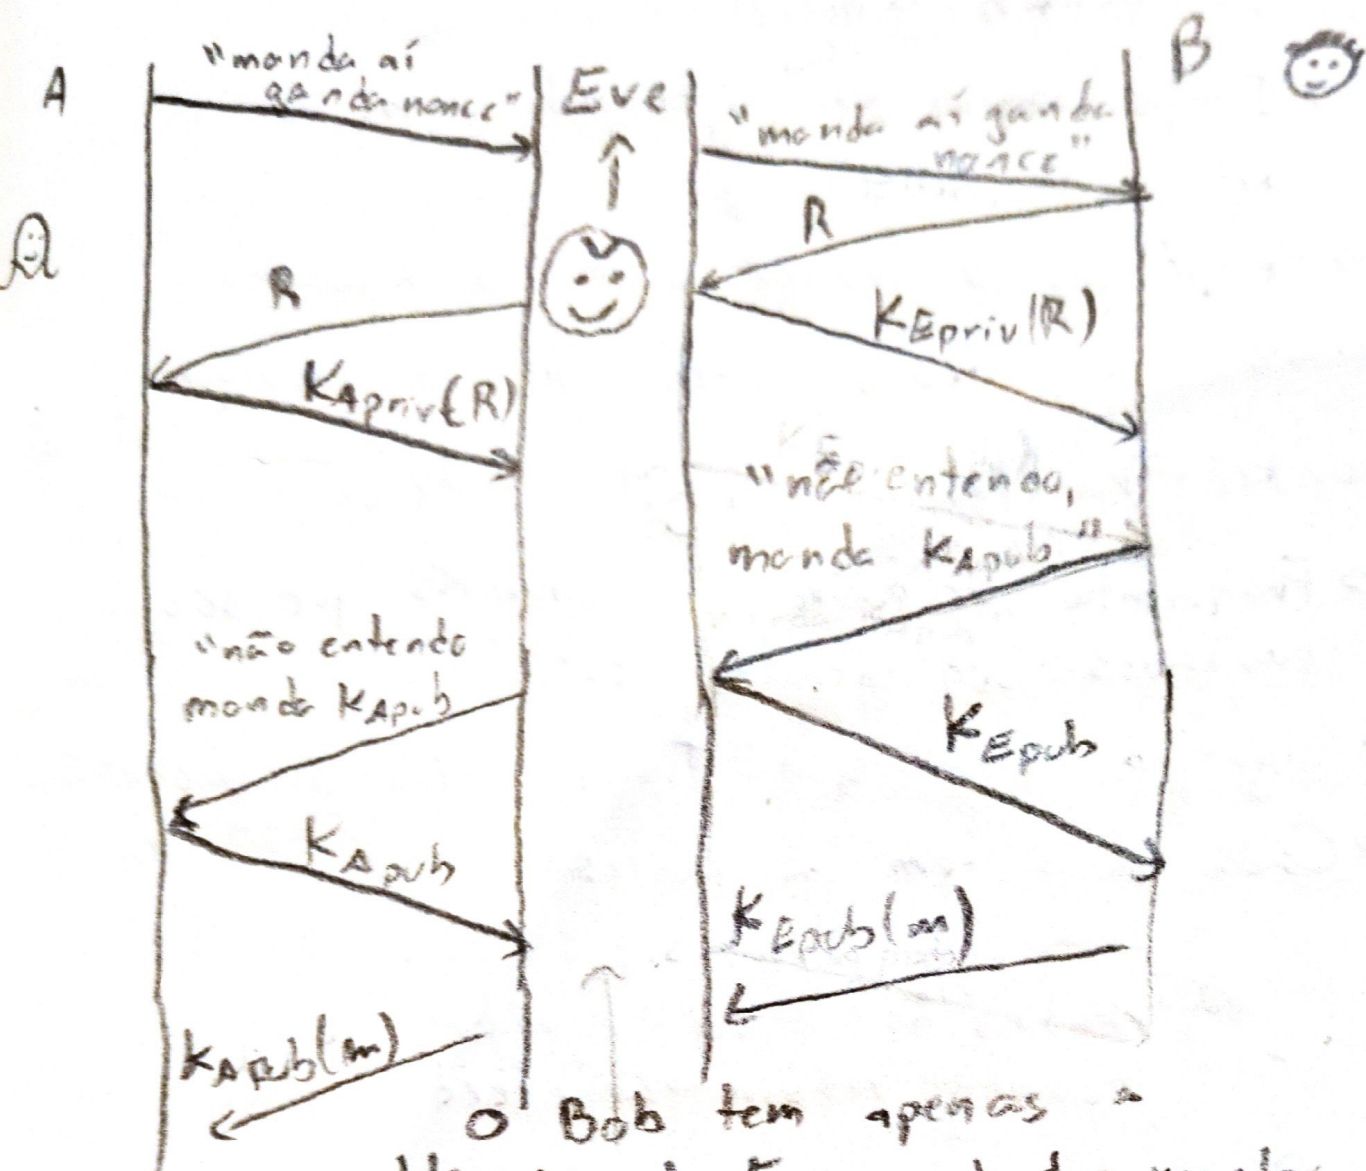 A
"manda aí
ganda nonce"
Eve
B
"manda aí ganda
nonce"
R
R
KEpriv(R)
KApriv(R)
"não entendo,
manda KApub"
"não entendo
manda KApub
KEpub
KApub
KEpub(m)
KApub(m)
O Bob tem apenas a